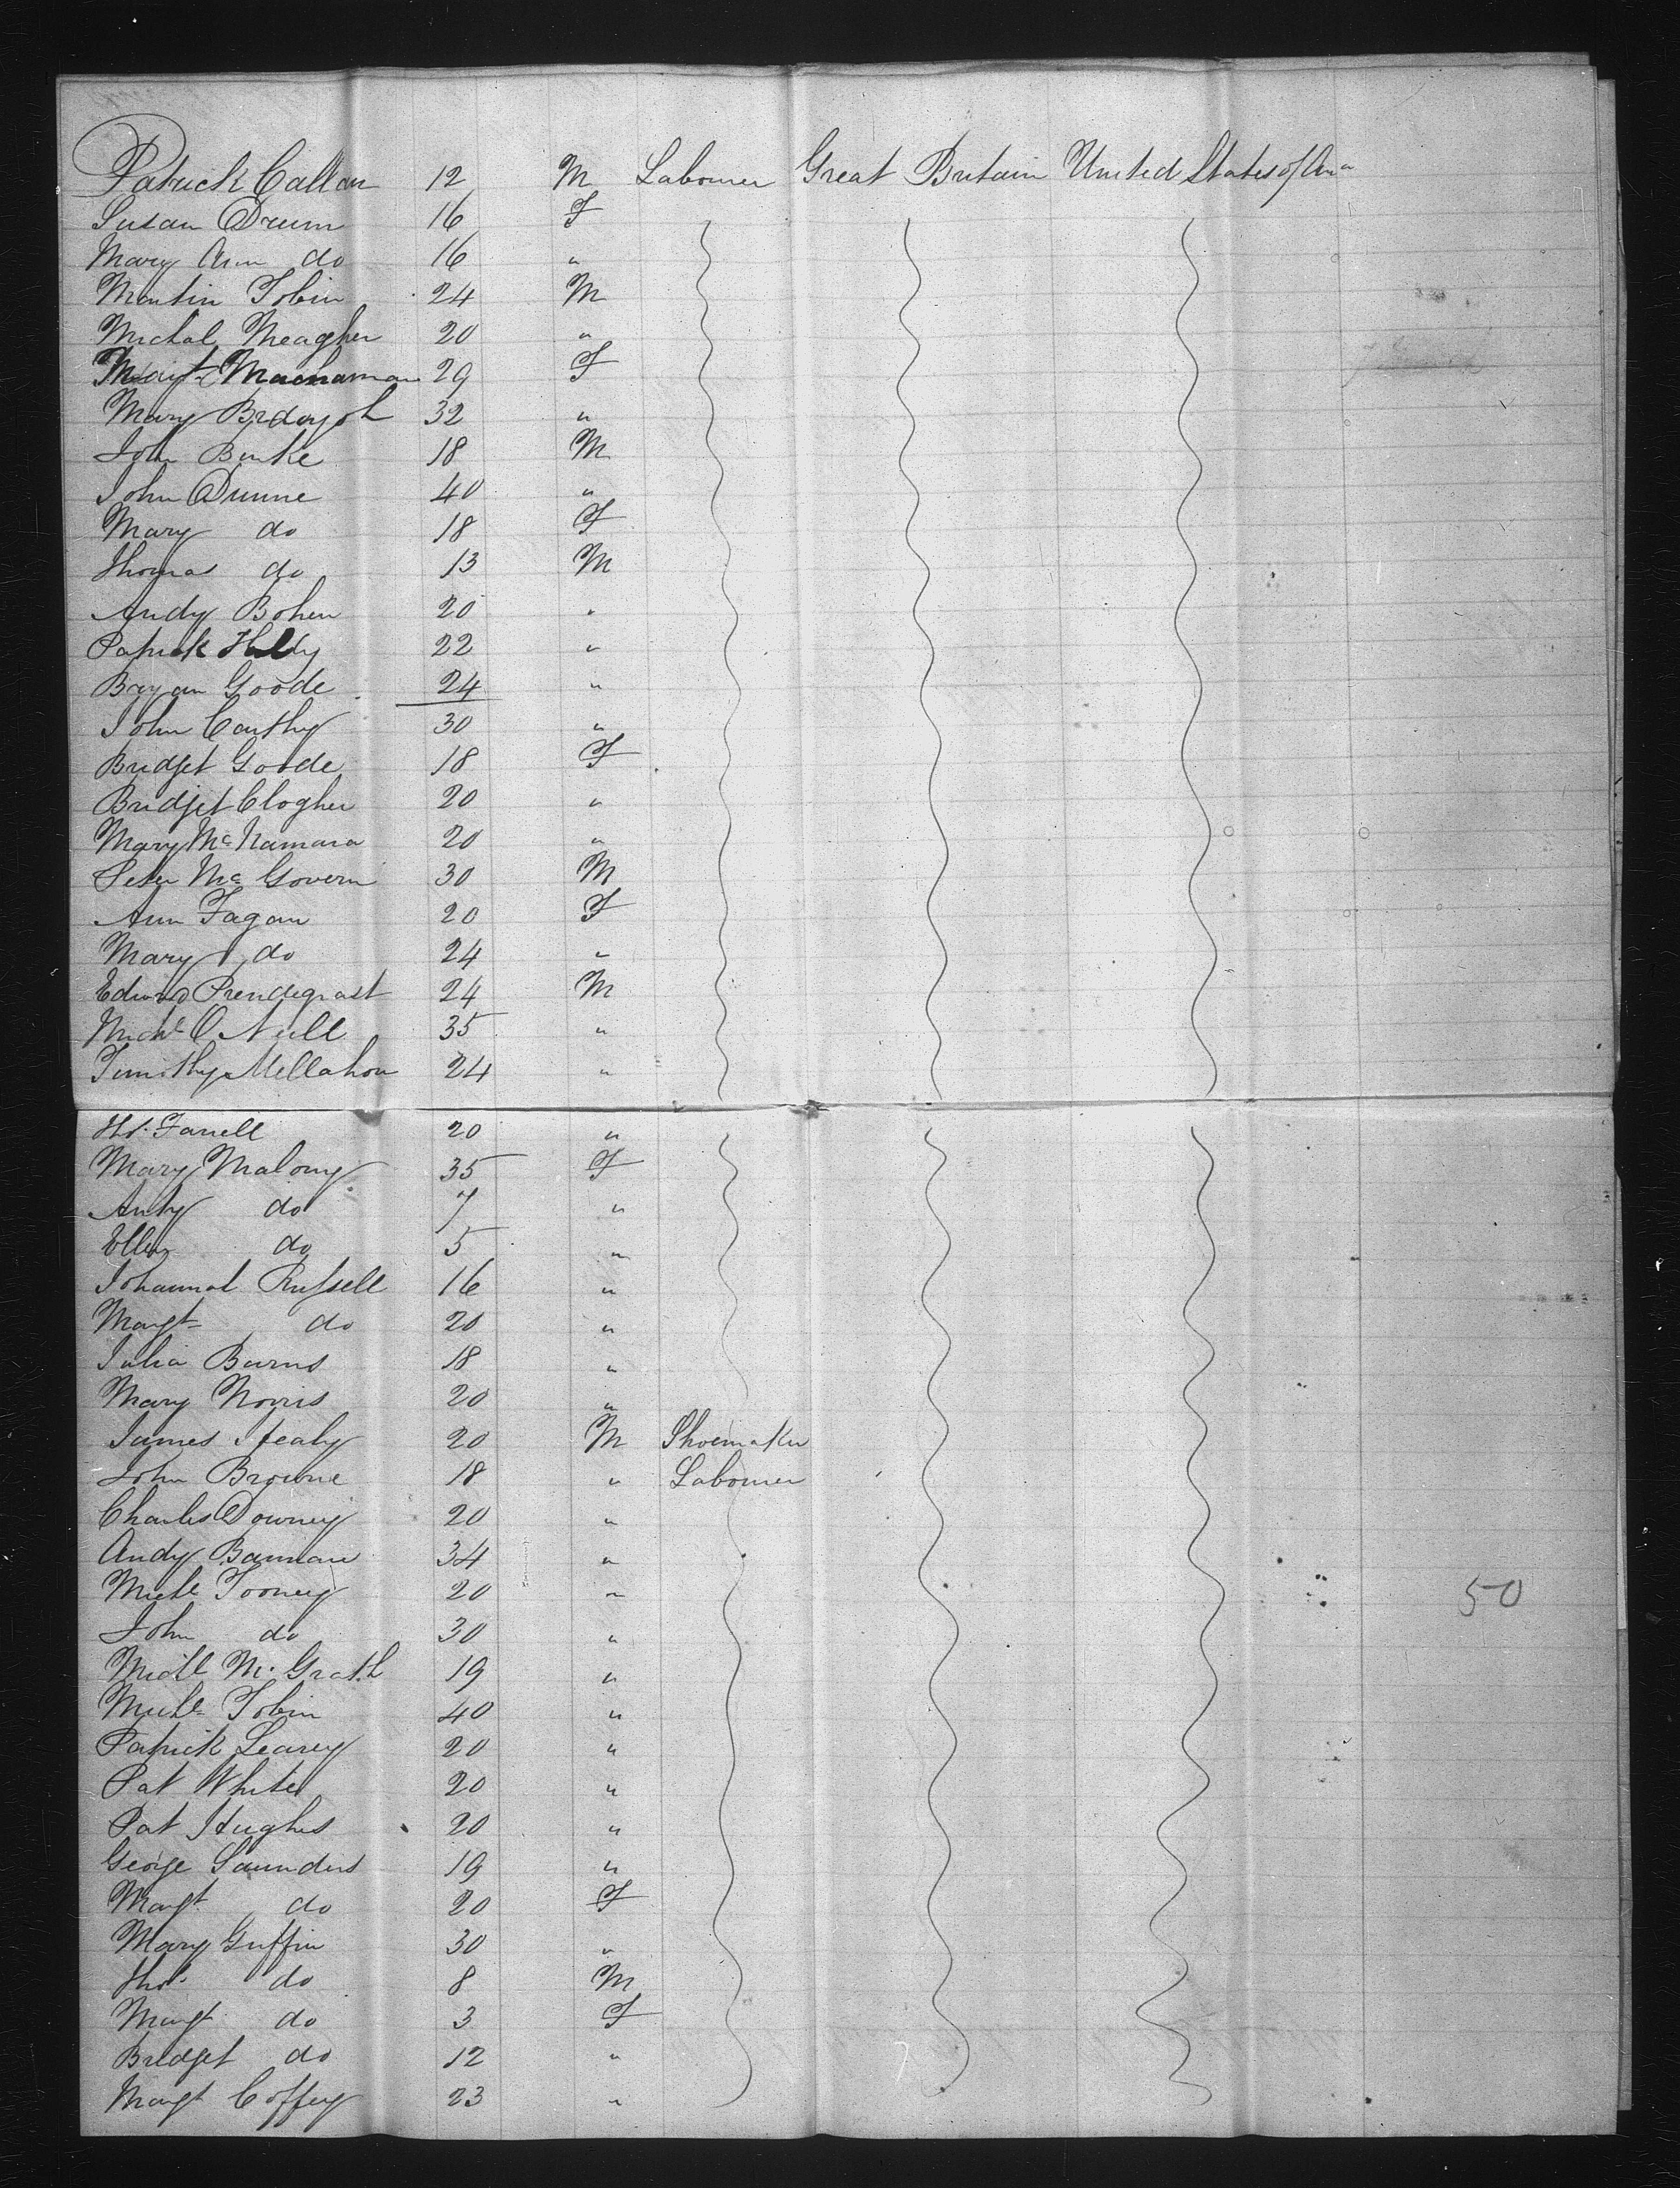 Patrick Callan 12 M Labourer Great Britain United States of Ama
Susan Drum 16 F
Mary Ann do 16 "
Martin Tobin 24 M
Michal Meagher 20 "
Margt Macnamara 29 F
Mary 32 "
John Burke 18 M
John Dunne 40 "
Mary do 18 F
Thomas do 13 M
Andy Bohen 20 "
Patrick 22 "
Bryan Goode 24 "
John Carthy 30 "
Bridget Goode 18 F
Bridget Clogher 20 "
Mary McNamara 20 "
Peter Mc Govern 30 M
Ann Fagan 20 F
Mary do 24 "
Edward Prendegrast 24 M
Michl O Neill 35 "
Timothy Mellahon 24 "
Ths. Farrell 20 "
Mary Malony 35 F
Anty do 7 "
Ellen do 5 "
Johannah Russell 16 "
Margt do 20 "
Julia Burns 18 "
Mary Norris 20 "
James Healy 20 M Shoemaker
John Browne 18 " Labourer
Charles Downey 20 "
Andy Bannan 34 "
Michl Toomey 20 " 50
John do 30 "
Michl Mc Grath 19 "
Michl Tobin 40 "
Patrick Learey 20 "
Pat White 20 "
Pat Hughes 20 "
George Saunders 19 "
Margt do 20 F
Mary Griffin 30 "
Ths. do 8 M
Margt do 3 F
Bridget do 12 "
Margt Coffey 23 "